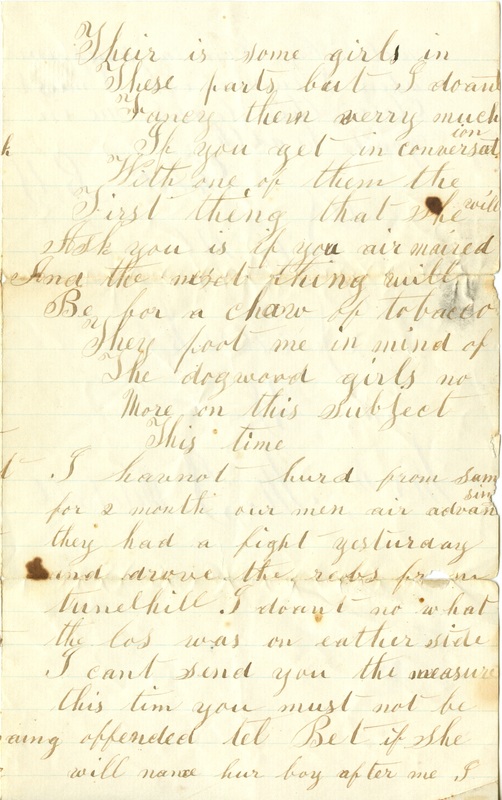 Their is some girls in
These parts but I doant
Fancy them verry much
If you get in conversation
With one of them the
First thing that she will
Ask you is if you air maired
And the next thing will
Be for a chaw of tobacco
They poot me in mind of
The dogwood girls no
More on this subject
This time
I havnot hurd from Sam
for 2 month our men air advansing
they had a fight yesturday
and drove the rebs from
tunelhill I doant no what
the los was on eather side
I cant send you the measure
this tim you must not be
offended tel Bet if she
will name hur boy after me I